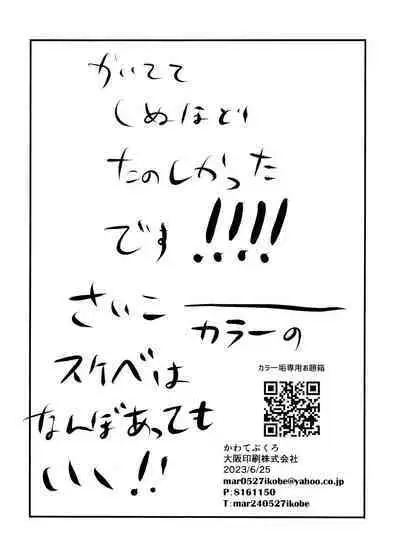 かいてて
しぬほど
たのしかった
です!!!!
さいこ
カラーの
スケベは
なんぼあっても
いい!!
カラー垢専用お題箱
かわてぶくろ
大阪印刷株式会社
2023/6/25
mar0527ikobe@yahoo.co.jp
P:8161150
T:mar240527ikobe